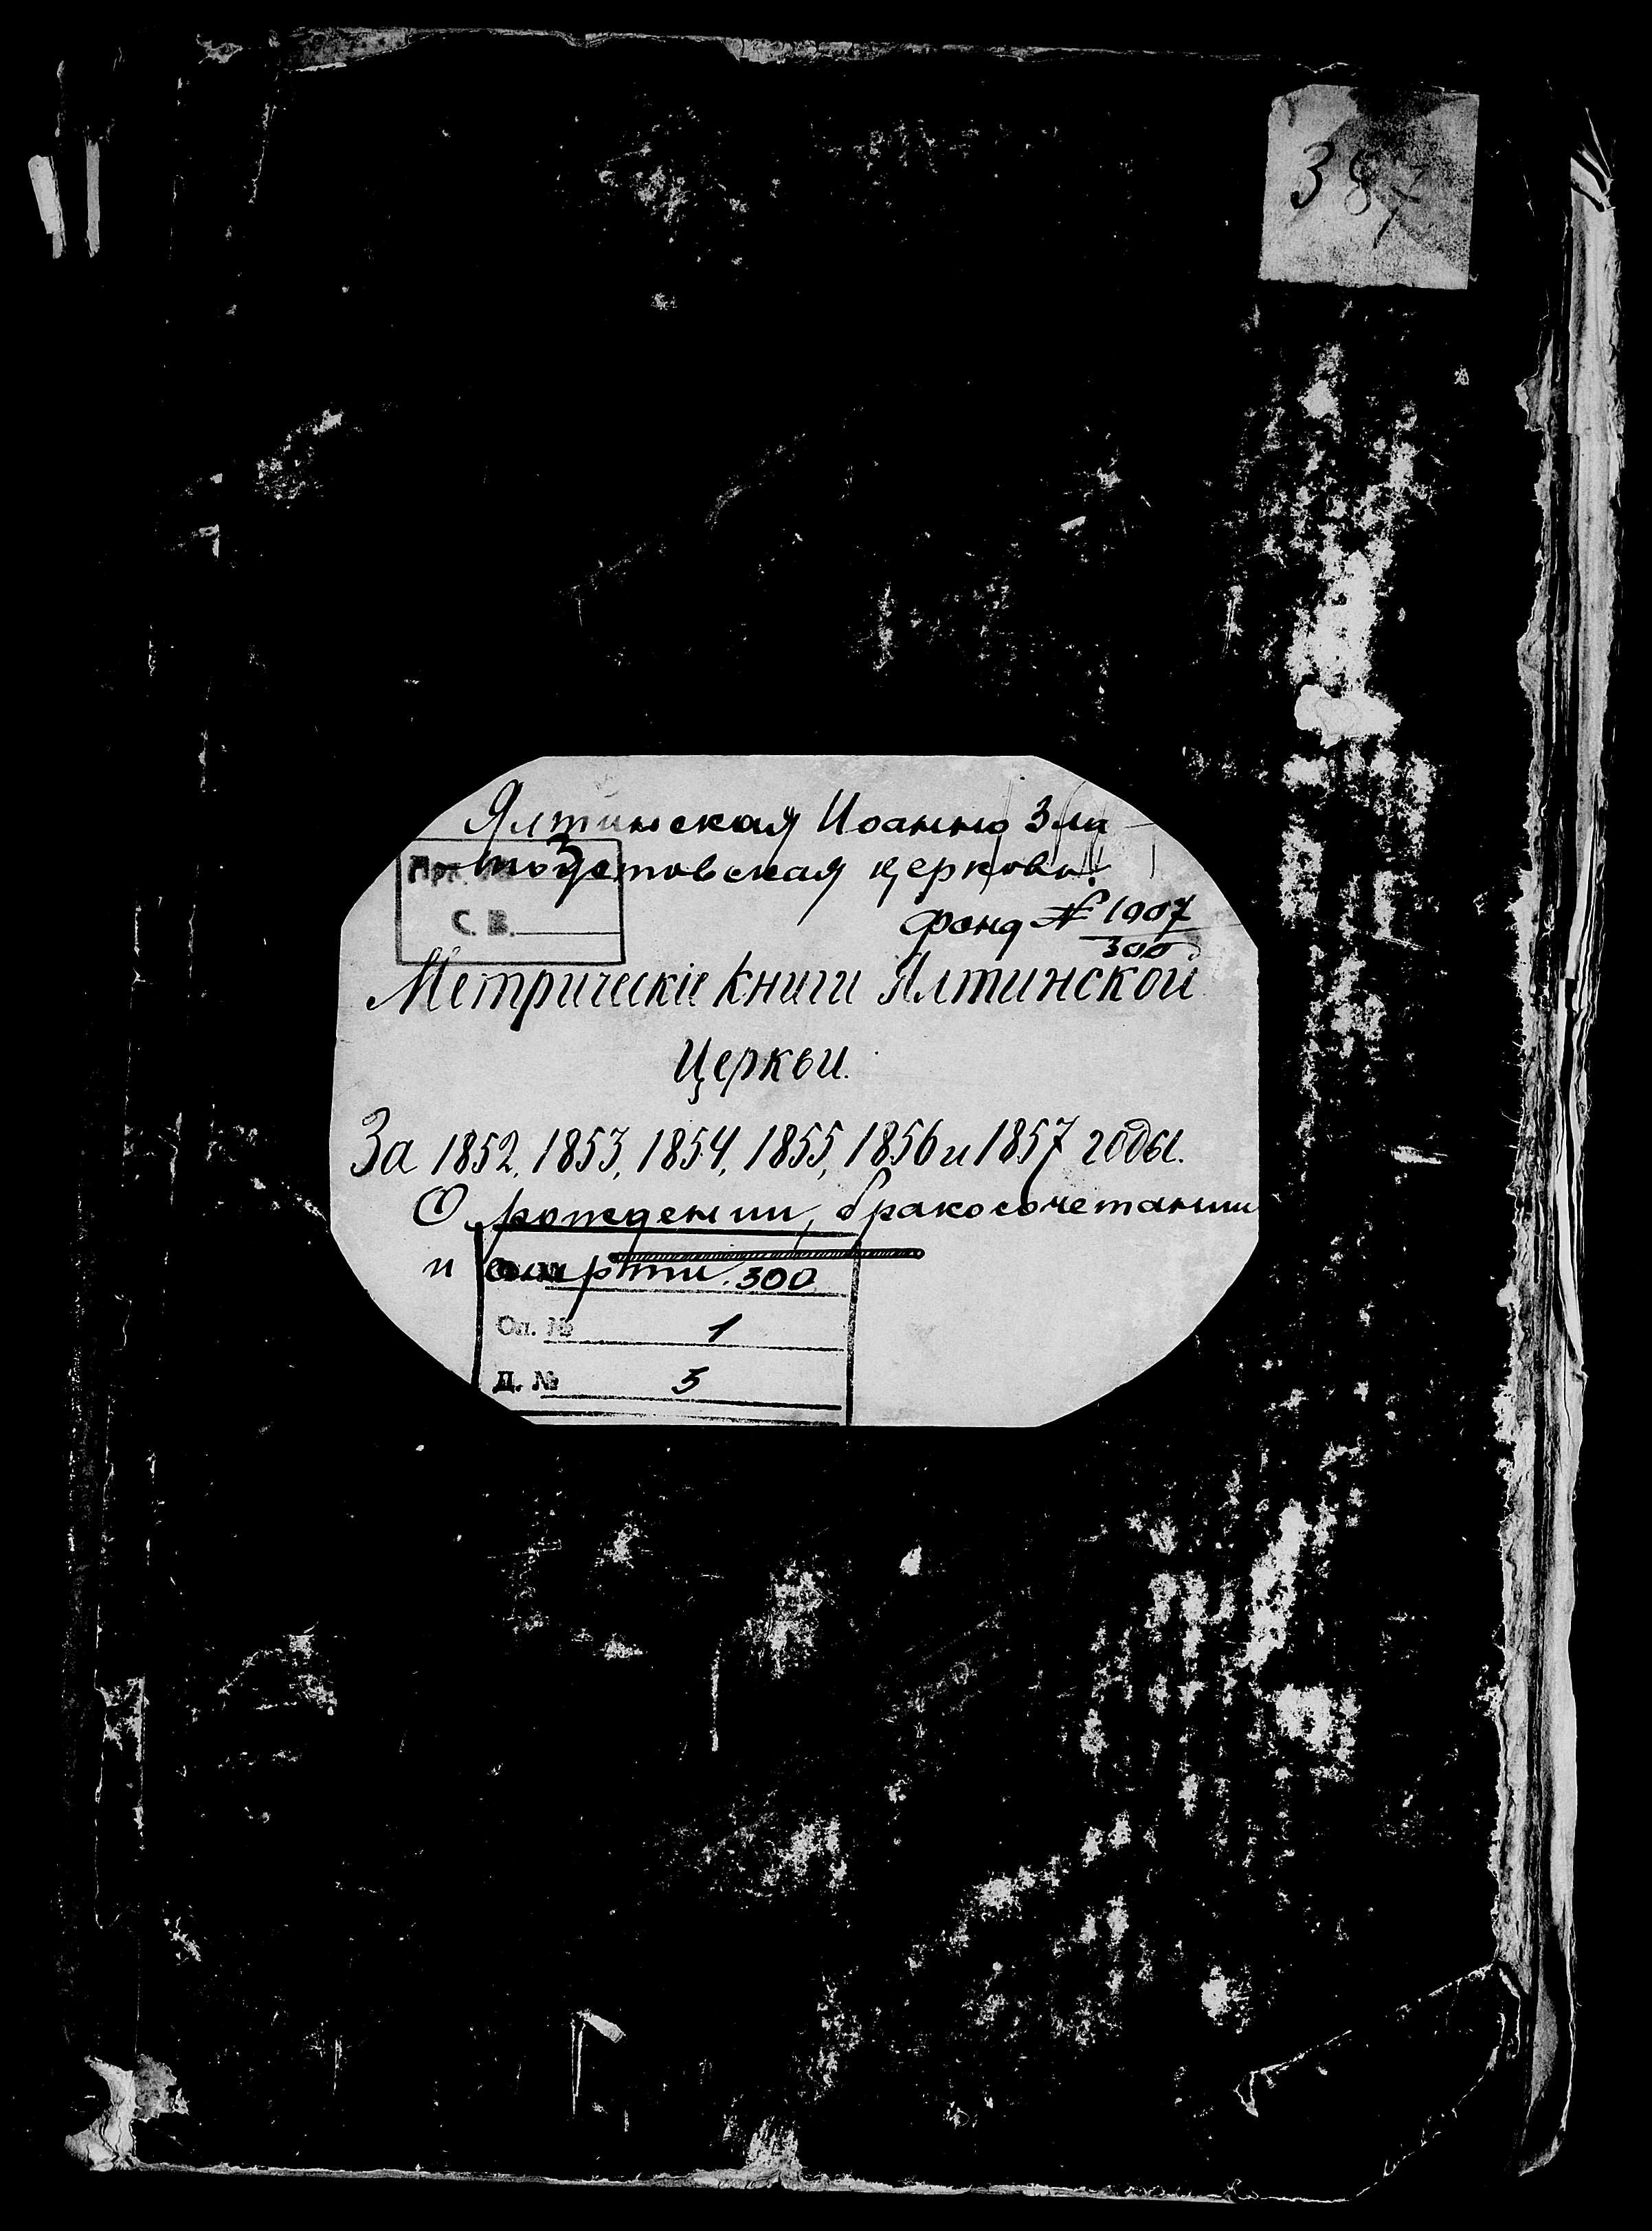 387
Ялтинская Иоанно Зла
тоустовская церковь.
Арх.
С. В.
фонд № 1007
300
Метрическіе книги Ялтинской
Церкви.
За 1852, 1853, 1854, 1855, 1856 и 1857 годы.
О рождении, бракосочетании
и смерти. 300
Оп. № 1
Д. № 5